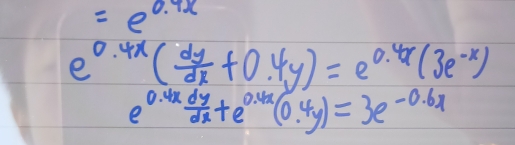 = e^0.4x
e^0.4x (dy/dx + 0.4y) = e^0.4x (3e^-x)
e^0.4x dy/dx + e^0.4x (0.4y) = 3e^-0.6x